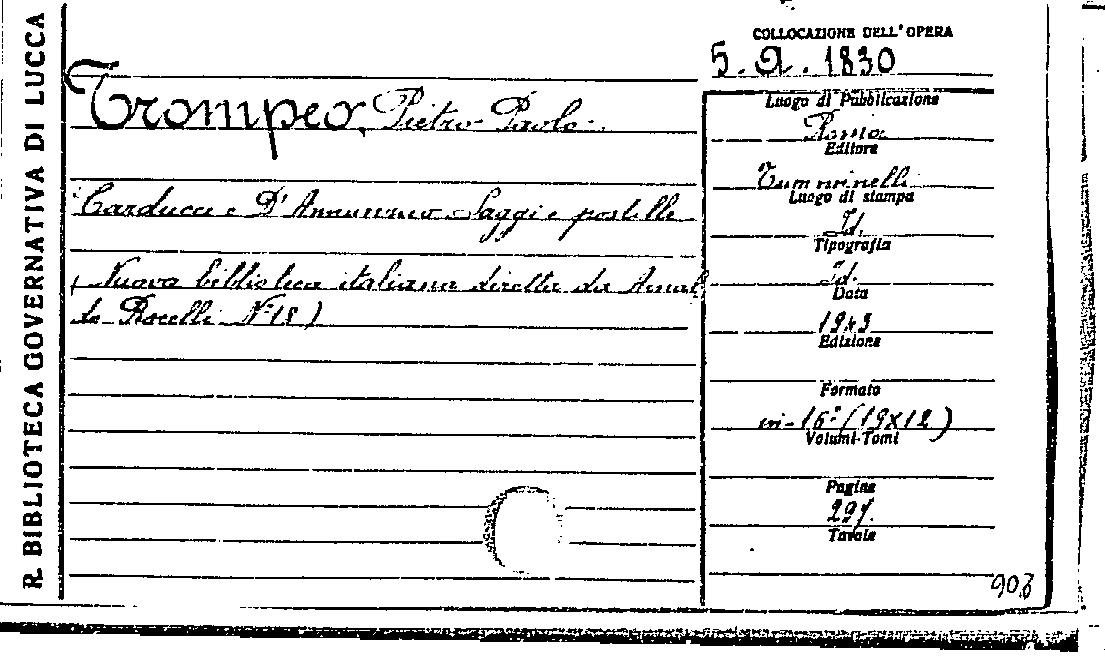 R. BIBLIOTECA GOVERNATIVA DI LUCCA
COLLOCAZIONE DELL'OPERA
5. A. 1830
Trompeo, Pietro Paolo.
Carducci e D'Annunzio - Saggi e postille
(Nuova biblioteca italiana diretta da Arnal
do Bocelli N. 18)
Luogo di Pubblicazione
Roma
Editore
Tumminelli
Luogo di stampa
Id.
Tipografia
Id.
Data
1943
Edizione
Formato
in-16° (19x12)
Volumi-Tomi
Pagine
291.
Tavole
903